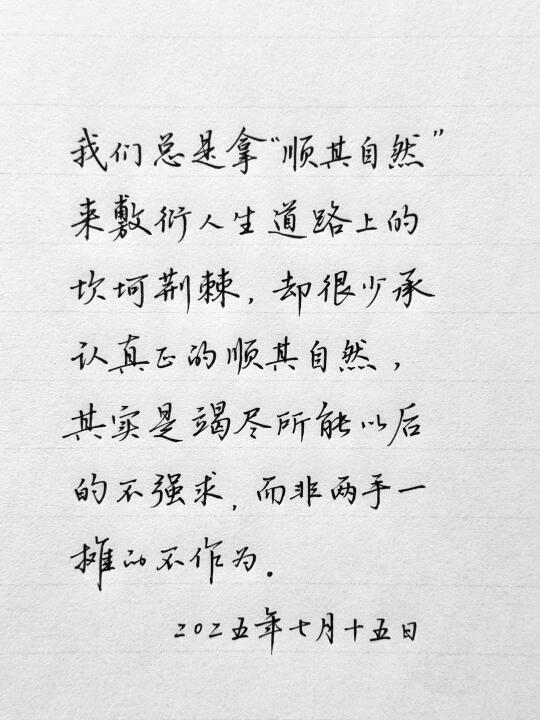 我们总是拿“顺其自然”
来敷衍人生道路上的
坎坷荆棘，却很少承
认真正的顺其自然，
其实是竭尽所能以后
的不强求，而非两手一
摊的不作为.
2025年七月十五日